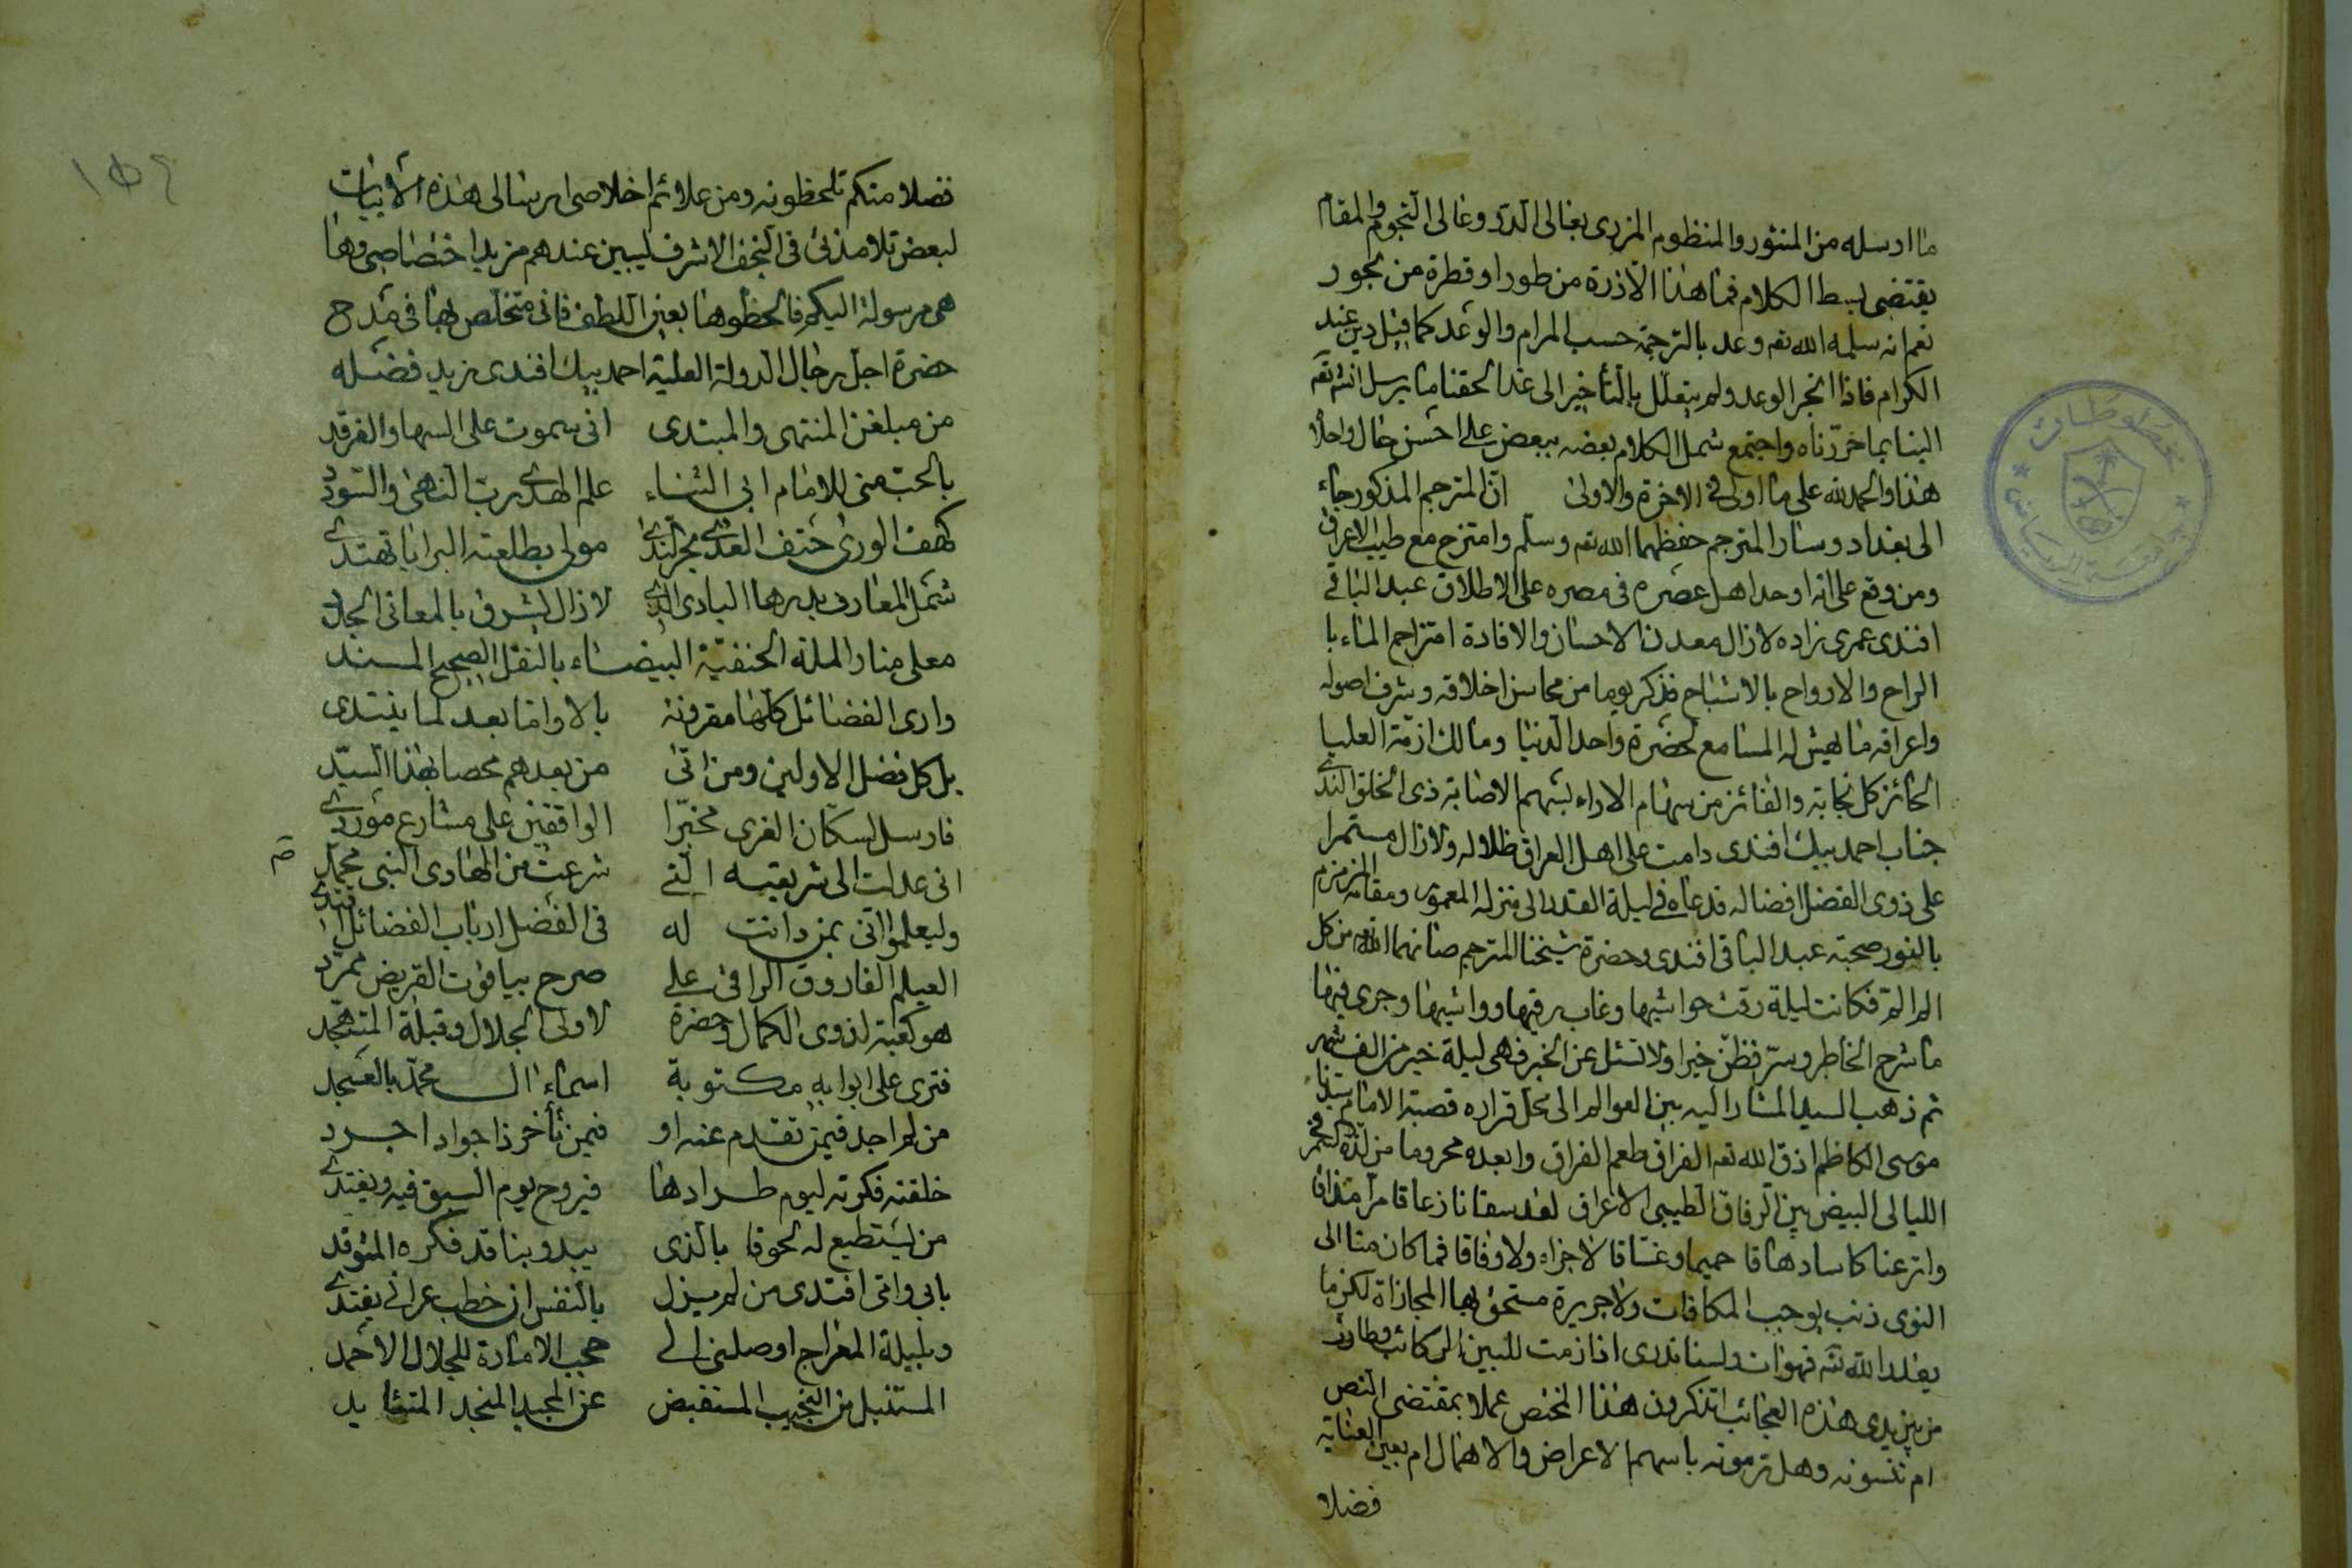 ما ارسله من المنثور والمنظوم المزرى بغالى الدرّ وغالى النجوم والمقام
يقتضى بسط الكلام فما هذا الاذرة من طور او قطرة من بحور
نعم انه سلمه الله تع وعد بالترجمة حسب المرام والوعد كما قيل دين عند
الكرام فاذا انجز الوعد ولم يتعلل بالتأخير الى غد الحقنا ما يرسل انشا تع
الينا بما حرّرناه واجتمع شمل الكلام بعضه ببعض على احسن حال واحلا
هذا والحمد لله على ما اولى فى الاخرة والاولى انّ المترجم المذكور جاء
الى بغداد وسار المترجم حفظهما الله تع وسلم وامتزج مع طيب الاعراق
ومن وقع على انه اوحد اهل عصره فى مصره على الاطلاق عبد الباقى
افندى عمرى زاده لا زال معدن الاحسان والافادة امتزاج الماء با
الراح والارواح بالاشباح فذكر يوما من محاسن اخلاقه وشرف اصوله
واعراقه ما يهش له المسامع لحضرة واحد الدنيا ومالك ازمّة العليا
الحائز كل نجابة والفائز من سهام الاراء بسهم الاصابة ذى الخلق الندى
جناب احمد بيك افندى دامت على اهل العراق ظلاله ولا زال مستمرا
على ذوى الفضل افضاله فدعاه فى ليلة القدر الى منزله المعمور ومقامه المزمزم
بالنور صحبة عبد الباقى افندى وحضرة شيخنا المترجم صانهما الله من كل
الم المّ فكانت ليلة رقت حواشيها وغاب رقيبها وواشيها وجرى فيها
ما شرح الخاطر وسرّ فظنّ خيرا ولا تسئل عن الخبر فهى ليلة خير من الف شهر
ثم ذهب السيد المشار اليه بين العوالم الى محل قراره قصبة الامام سيدنا
موسى الكاظم اذق الله تع الفراق طعم الفراق وابعده محروما من لذة
الليالى البيض بين الرفاق الطيبى الاعراق لقد سقانا زعاقا مرّا مذاقا
واترعنا كاسا دهاقا حميما وغسّاقا لا جزاء ولا وفاقا فما كان منا الى
النوى ذنب يوجب المكافات ولا جريرة مستحق بها المجازاة لكن ما
يقدر الله تع فهو ات ولسنا ندرى اذا زمت للبين الركائب
من بين يدى هذه العجائب اتذكرون هذا المخلص عملا بمقتضى النص
ام تنسونه وهل ترمونه باسهم الاعراض والاهمال ام بعين العناية
فضلا
فضلا منكم تلحظونه ومن علائم اخلاصى ارسالى هذه الابيات
لبعض تلامذتى فى النجف الاشرف ليبين عندهم مزيد اختصاصى وها
هى مرسولة اليكم فالحظوها بعين اللطف فانى متخلص بها فى مدح
حضرة اجل رجال الدولة العلية احمد بيك افندى زيد فضله
من مبلغن المنتهى والمبتدى انى سموت على السها والفرقد
بالحبّ منى للامام ابى الثناء علم الهدى ربّ النهى والسودد
كهف الورى حتف العدى بحر الندى مولى بطلعته البرايا تهتدى
شمس المعارف بدرها البادى الذى لا زال يشرق بالمعانى
معلى منار الملة الحنفيّة البيضاء بالنقل الصحيح المسند
وارى الفضائل كلها مقرونة بالاواما بعد لما يبتدى
بل كل فضل الاولين ومن اتى من بعدهم محصا بهذا السيّد
فارسل لسكان الغرى مخبّرا الواقفين على مشارع موردى
انى عدلت الى شريعته التى شرعت من الهادى النبى محمد صم
وليعلموا انّى بمن دانت له فى الفضل ارباب الفضائل اقتدى
العيلم الفاروق الراقى على صرح بياقوت القريض ممرّد
هو كعبة لذوى الكمال وحضرة لاولى الجلال وقبلة المتهجد
فترى على ابوابه مكتوبة اسماء ال محمّد بالعسجد
من لم اجد فيمن تقدم عنه او فيمن تأخر ذا جواد اجرد
خلقته فكرته ليوم طرادها فيروح يوم السبق فيه ويغتدى
من يستطيع له لحوقا بالذى يبدو بناقد فكره المتوقد
بابى وامّى افتدى من لم يزل بالنفس ان خطب عرانى يفتدى
وبليلة المعراج اوصلنى الى حجب الامارة للجلال الاحمد
المستنبل من النجيب المنقبض عن المجيد المنجد
١٥٤